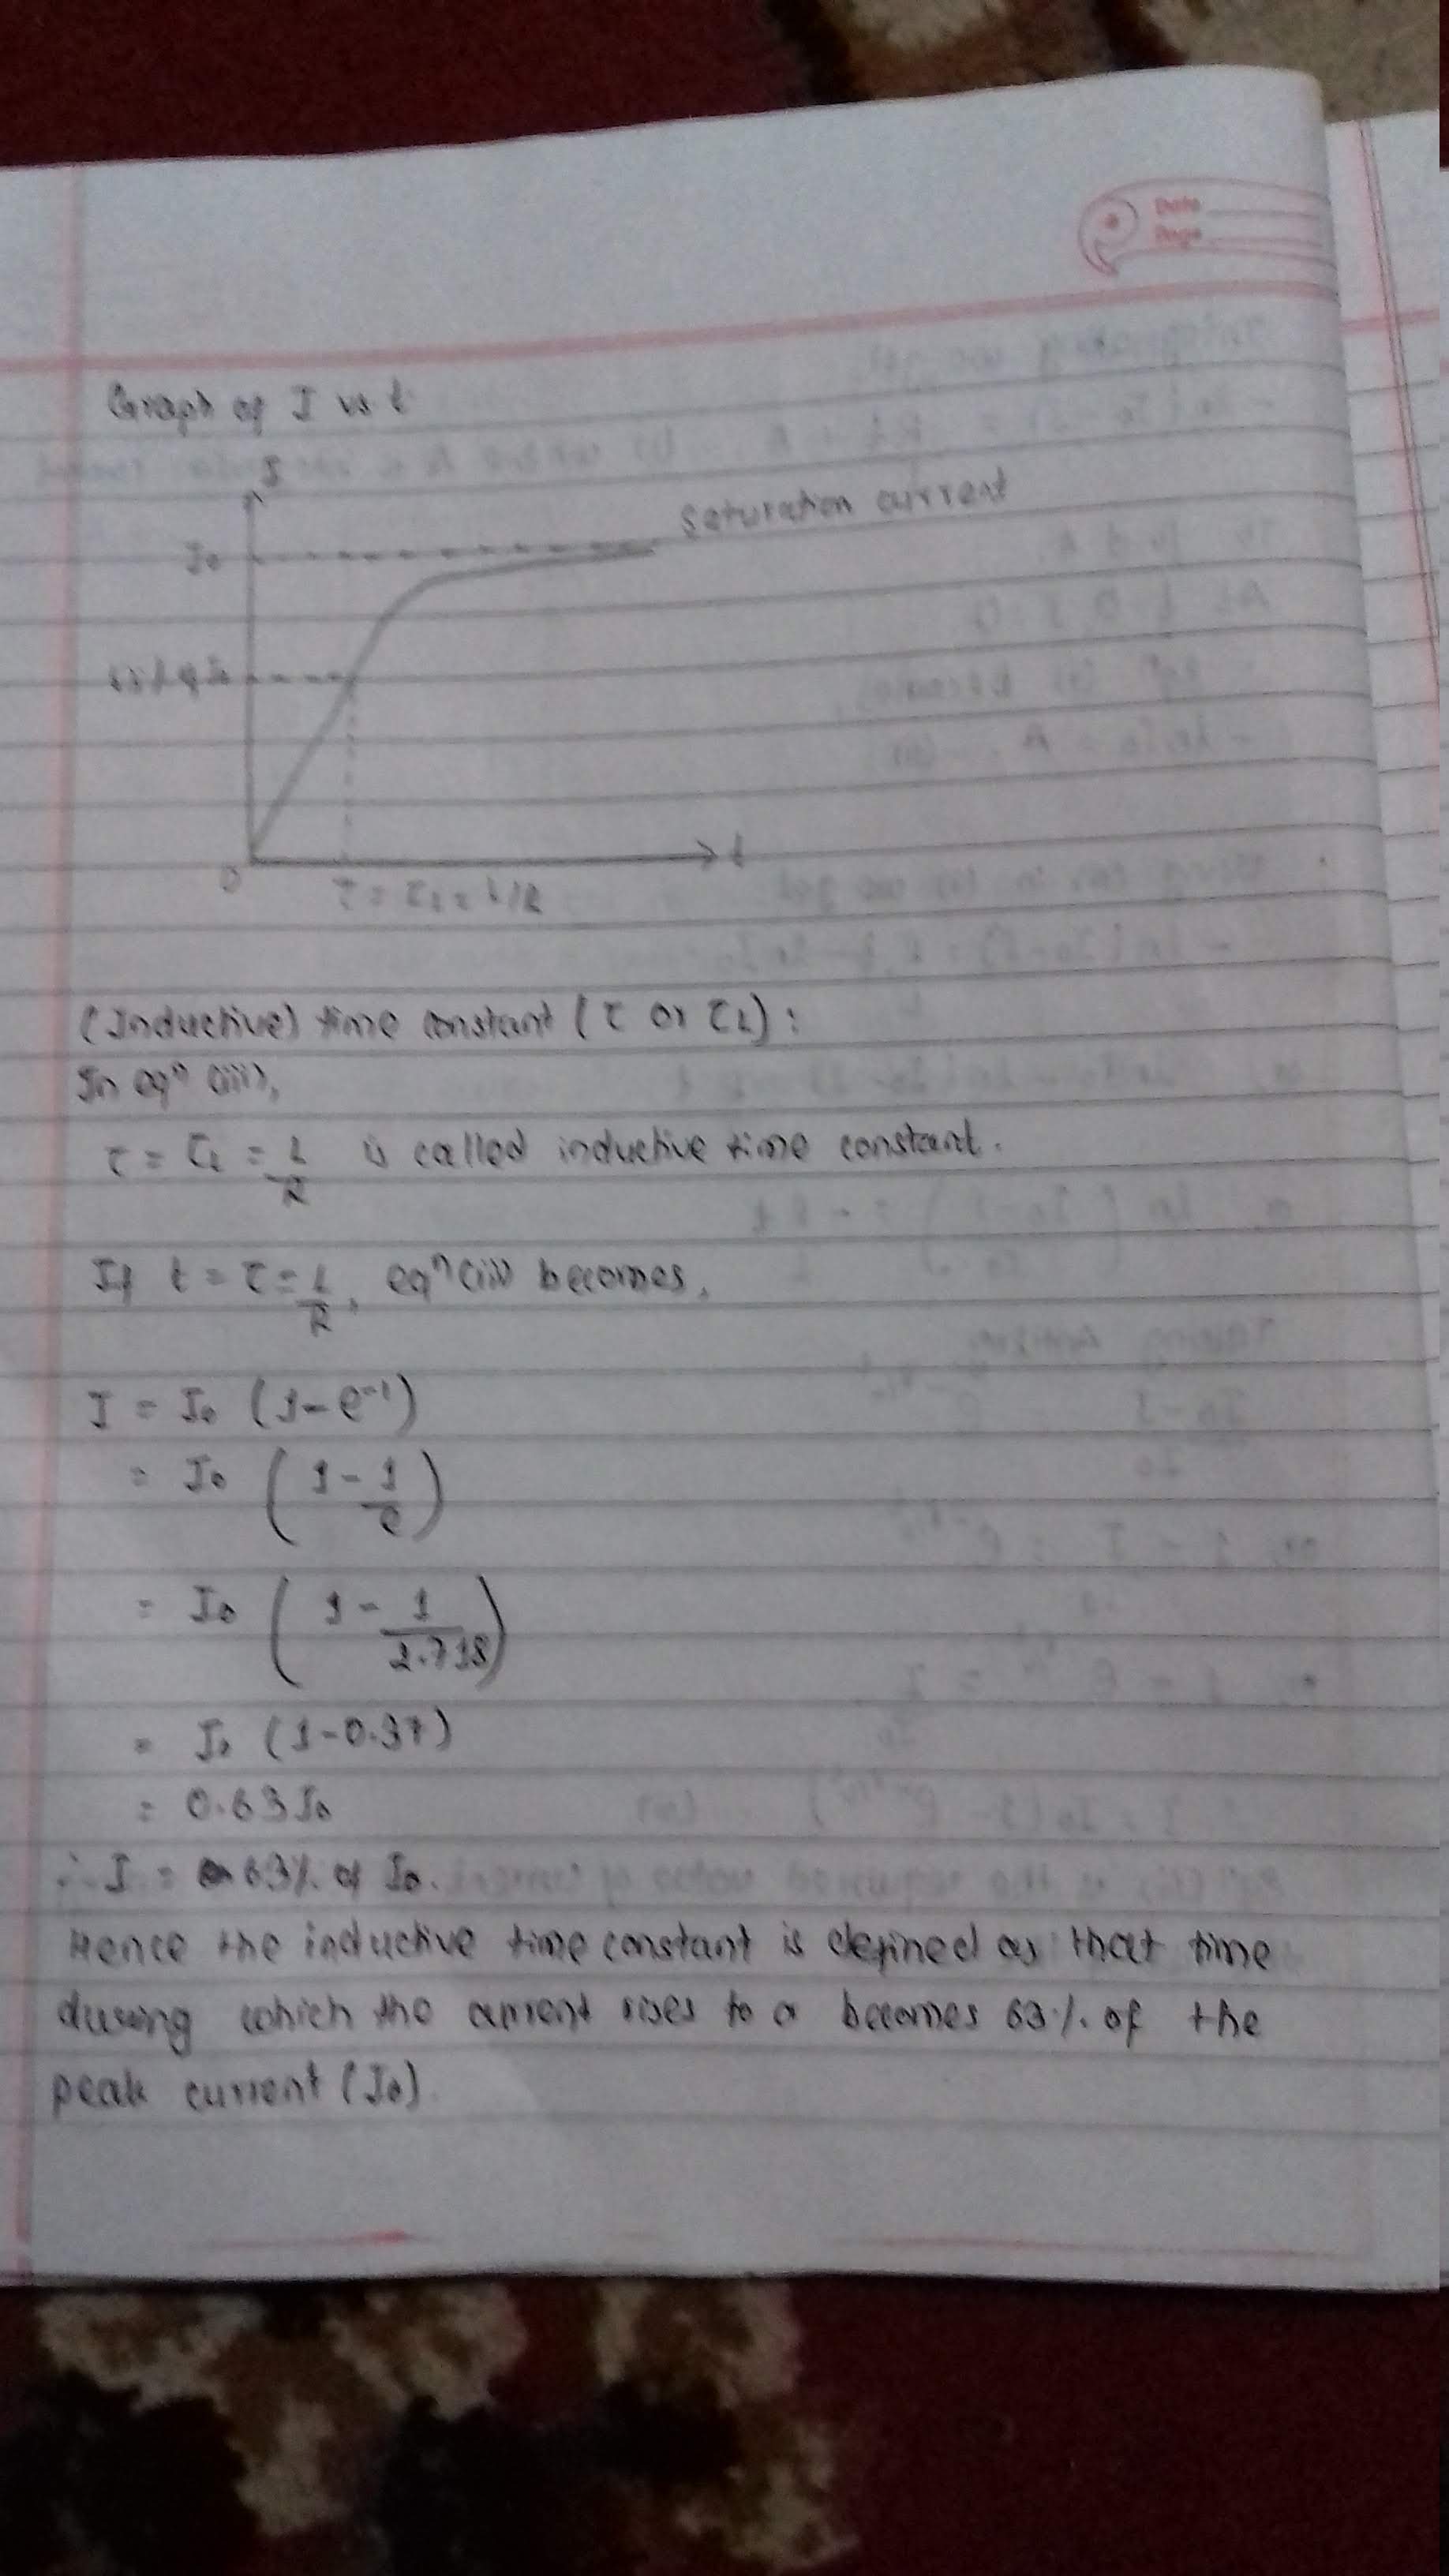 Date
Page
Graph of I vs t
I
Saturation current
I₀
63% of I₀
t
0
τ = τL = L/R
(Inductive) time constant (τ or τL) :
In eqⁿ (iii),
τ = τL = L/R is called inductive time constant.
If t = τ = L/R, eqⁿ (iii) becomes,
I = I₀ (1 - e⁻¹)
= I₀ (1 - 1/e)
= I₀ (1 - 1/2.718)
= I₀ (1 - 0.37)
= 0.63 I₀
∴ I = 63% of I₀.
Hence the inductive time constant is defined as that time
during which the current rises to or becomes 63% of the
peak current (I₀).